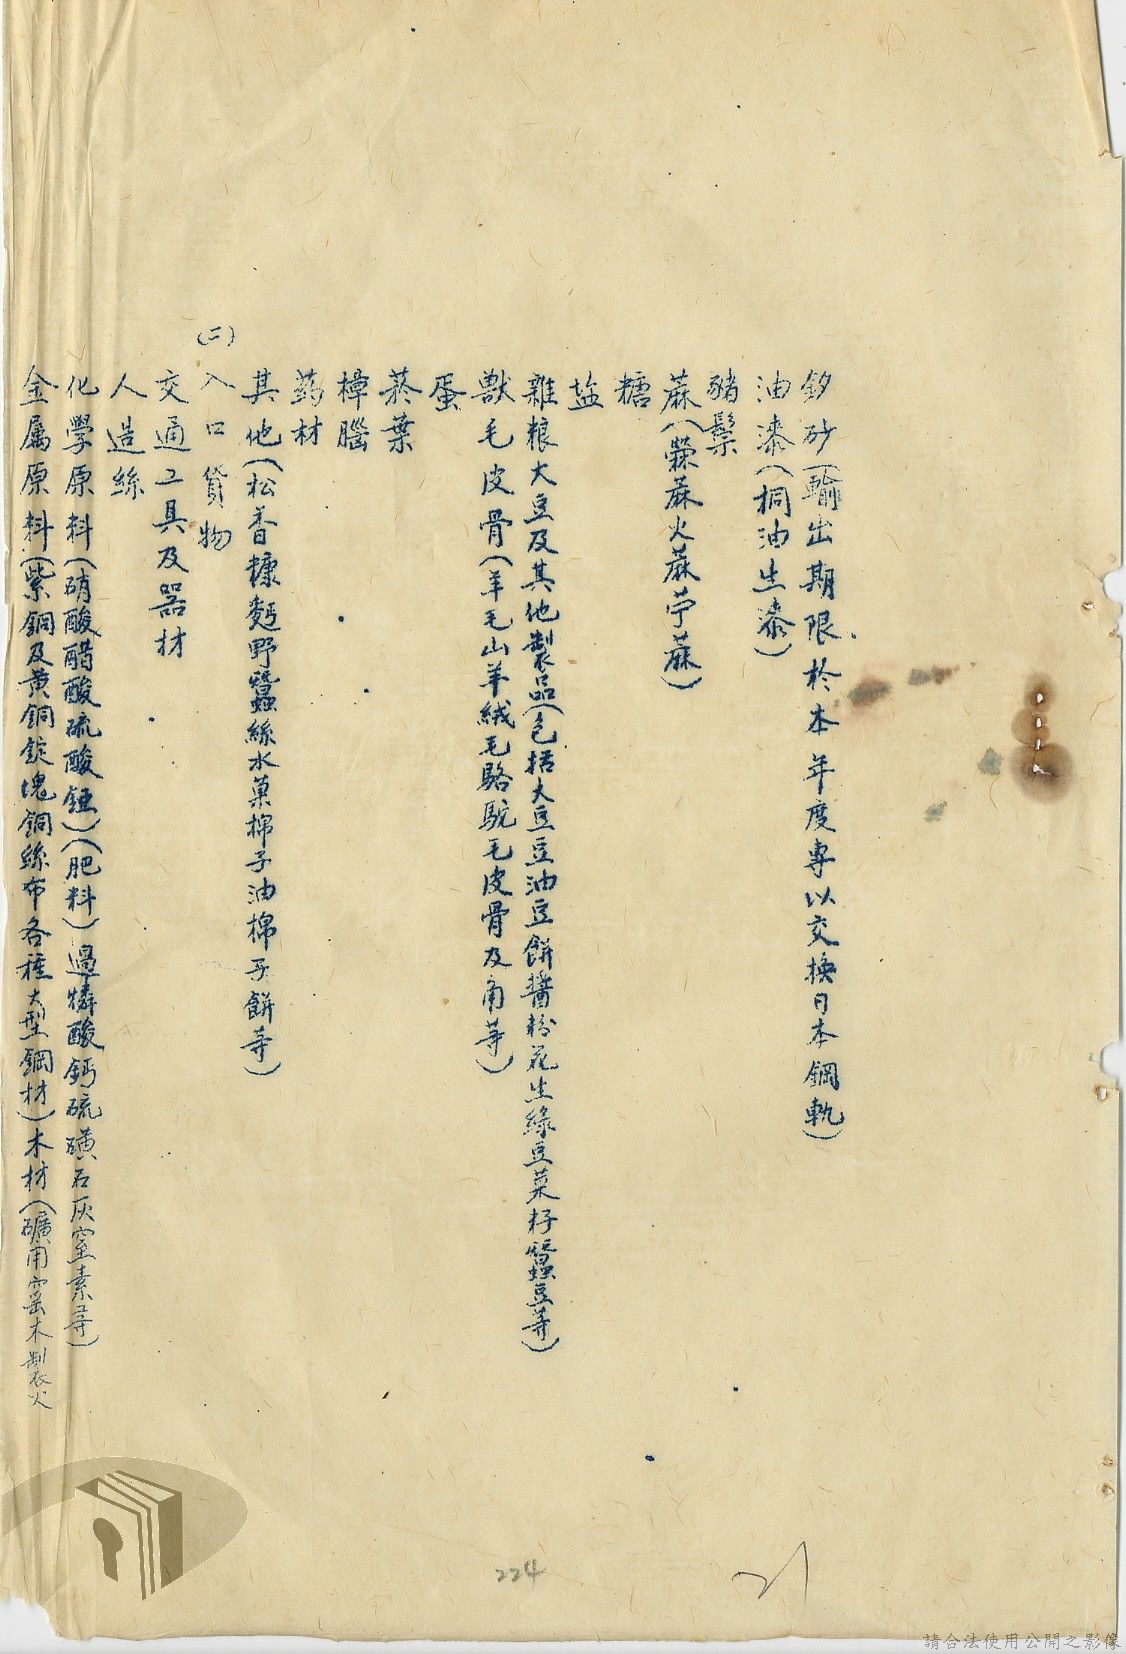 鈔砂(輸出期限於本年度專以交換日本鋼軌)
油漆(桐油生漆)
豬鬃
蔴(檾蔴火蔴苧蔴)
糖
盐
雜粮大豆及其他製品(包括大豆豆油豆餅醬粉花生綠豆菜籽蠶豆等)
獸毛皮骨(羊毛山羊絨毛駱駝毛皮骨及角等)
蛋
菸葉
樟腦
葯材
其他(松香糠麩野蠶絲水菓棉子油棉子餅等)
(二)入口貨物
交通工具及器材
人造絲
化學原料(硝酸醋酸硫酸錏)(肥料)過燐酸鈣硫磺石灰窒素等)
金属原料(紫銅及黄銅錠塊銅絲布各種大型鋼材)木材(礦用窰木製火
224
21
請合法使用公開之影像